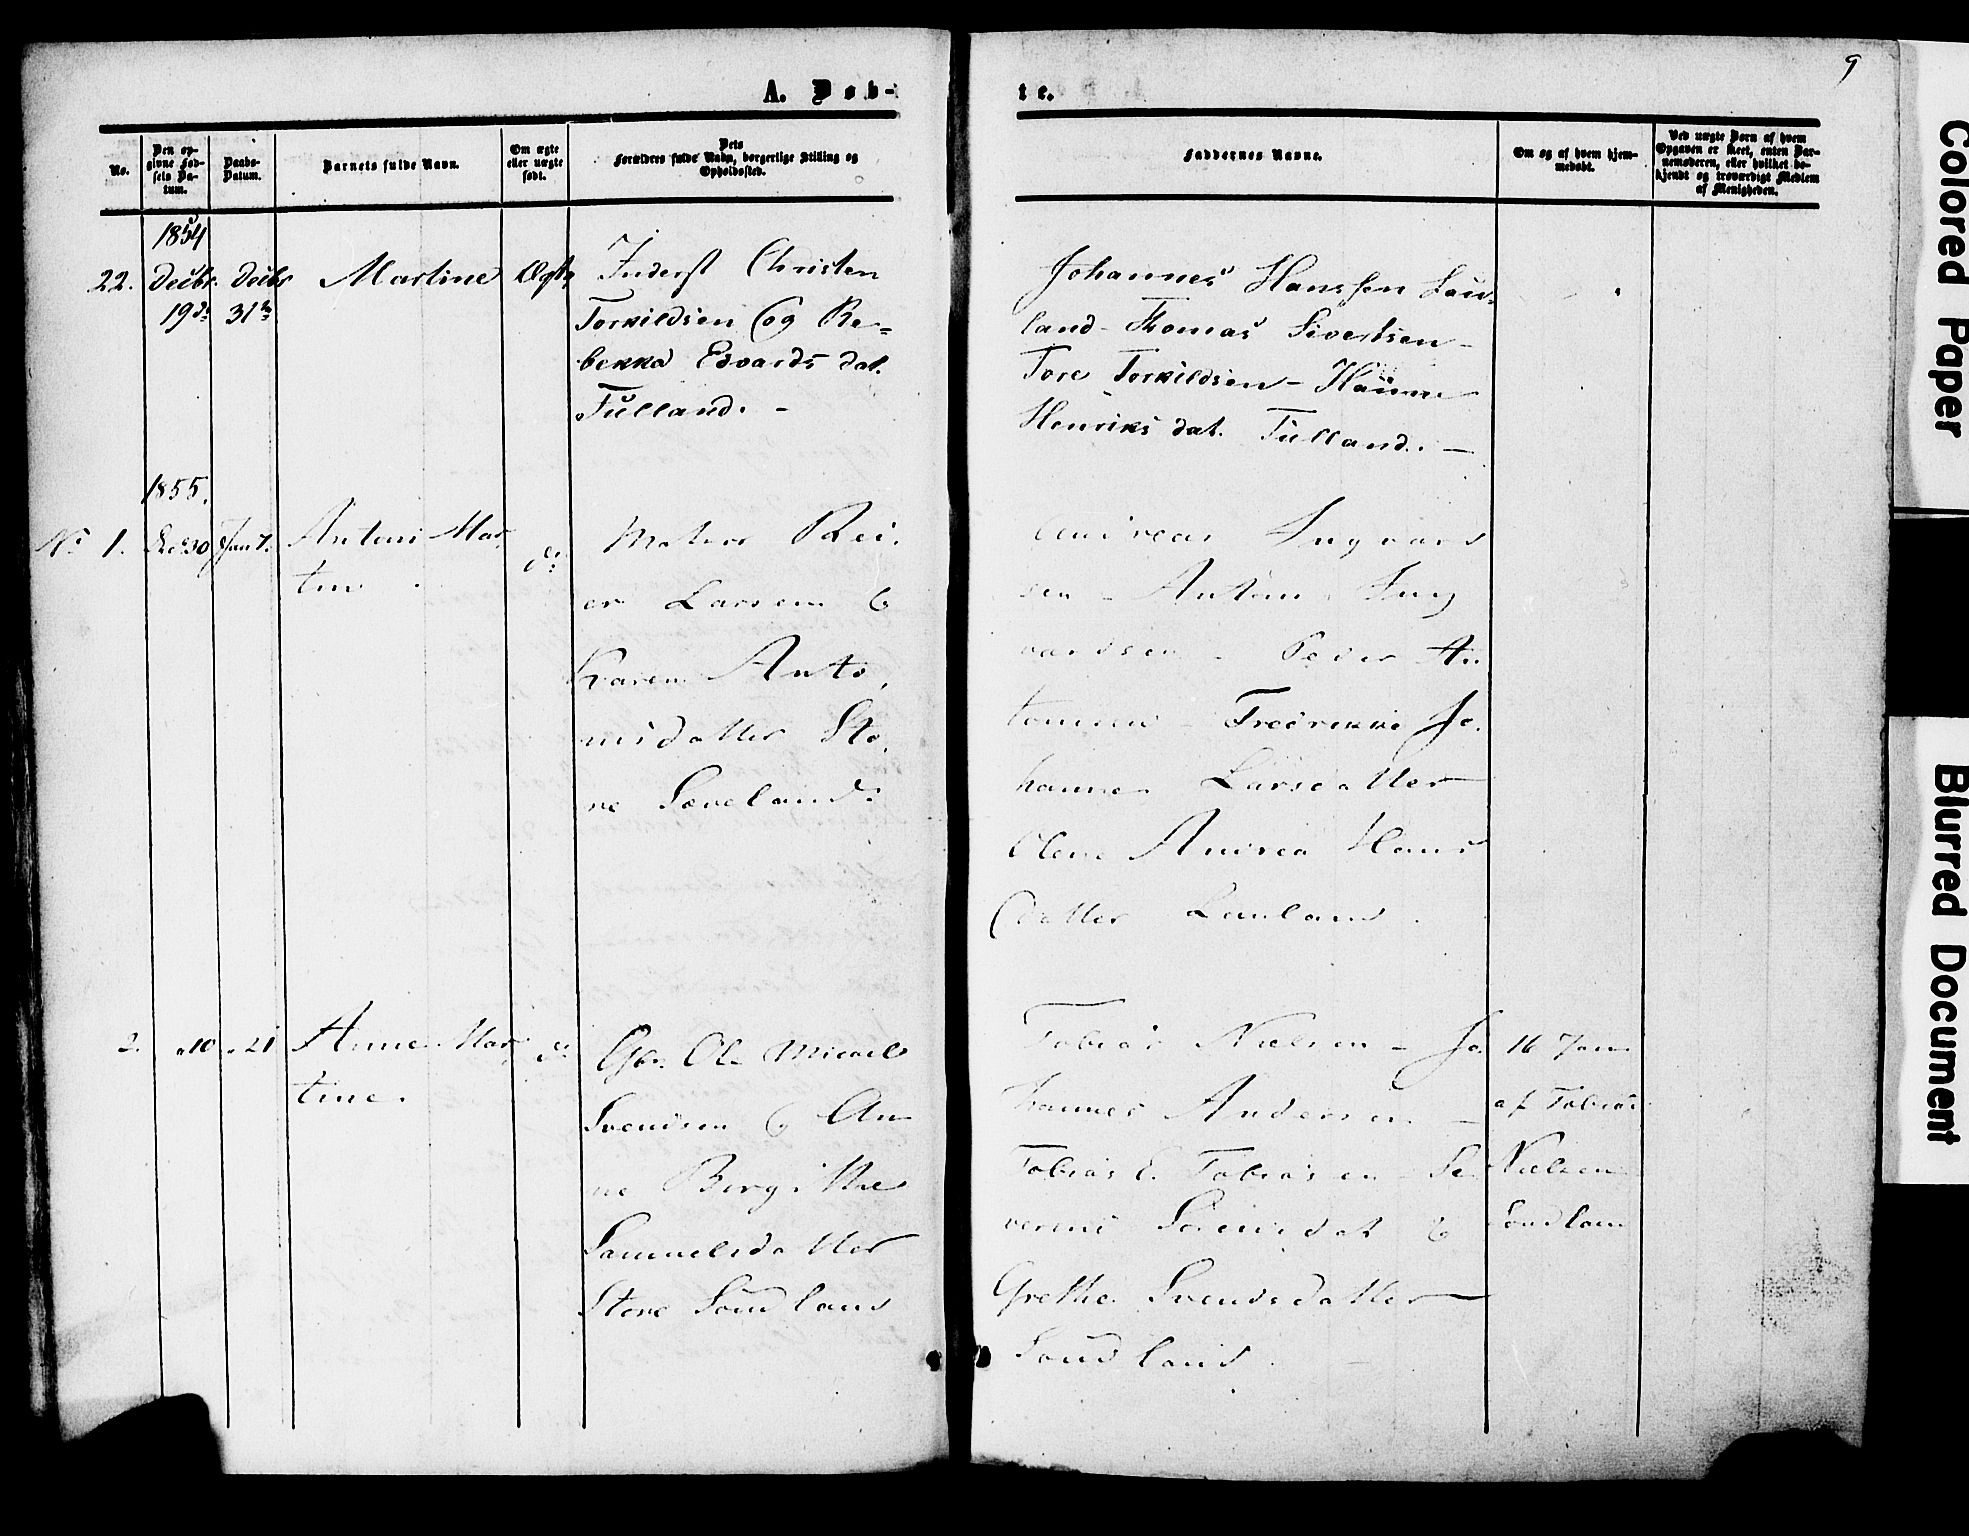 9
A. Døb-
te.
No.
Den op-
givne Fød-
sels Da-
tum.
Daabs-
Datum.
Barnets fulde Navn.
Om ægte
eller uægte
født.
Dets
Forældres fulde Navn, borgerlige Stilling og
Opholdssted.
Faddernes Navne.
Om og af hvem hjem-
medøbt.
Ved uægte Barn af hvem
Opgaven er skeet, enten Bar-
nemoderen, eller hvilket be-
kjendt og troværdigt Medlem
af Menigheden.
1854
22.
Decbr.
19de
Decbr
31te
Martine
Ægte
Inderst Christen
Torkildsen og Re-
bekka Edvards dat.
Tulland. -
Johannes Hanssen Lau-
land - Thomas Sivertsen -
Tore Torkildsen - Hanne
Henriks dat. Tulland. -
1855.
No 1.
Dec 30
Jan 7.
Antoni Mar
tin
do
Matros Rei
er Larsen &
Karen Anto
nisdatter Sto
re Sæveland
Andreas Ingvars
sen - Anton Ing
vardsen - Peder An
tonsen Fredrikke Jo
hanne Larsdatter
Olene Andrea Hans
datter Lauland
2.
" 10
" 21
Anne Mar
tine.
do
Gbr. Ole Micael
Svendsen & An
ne Birgithe
Samuelsdatter
Store Søndland
Tobias Nielsen - Jo
hannes Andersen -
Tobias E. Tobiasen Se
verine Sørensdat &
Grethe Svendsdatter
Sondland. -
16 Jan
af Tobias
Nielsen
Sondlan
Colored Paper
Blurred Document